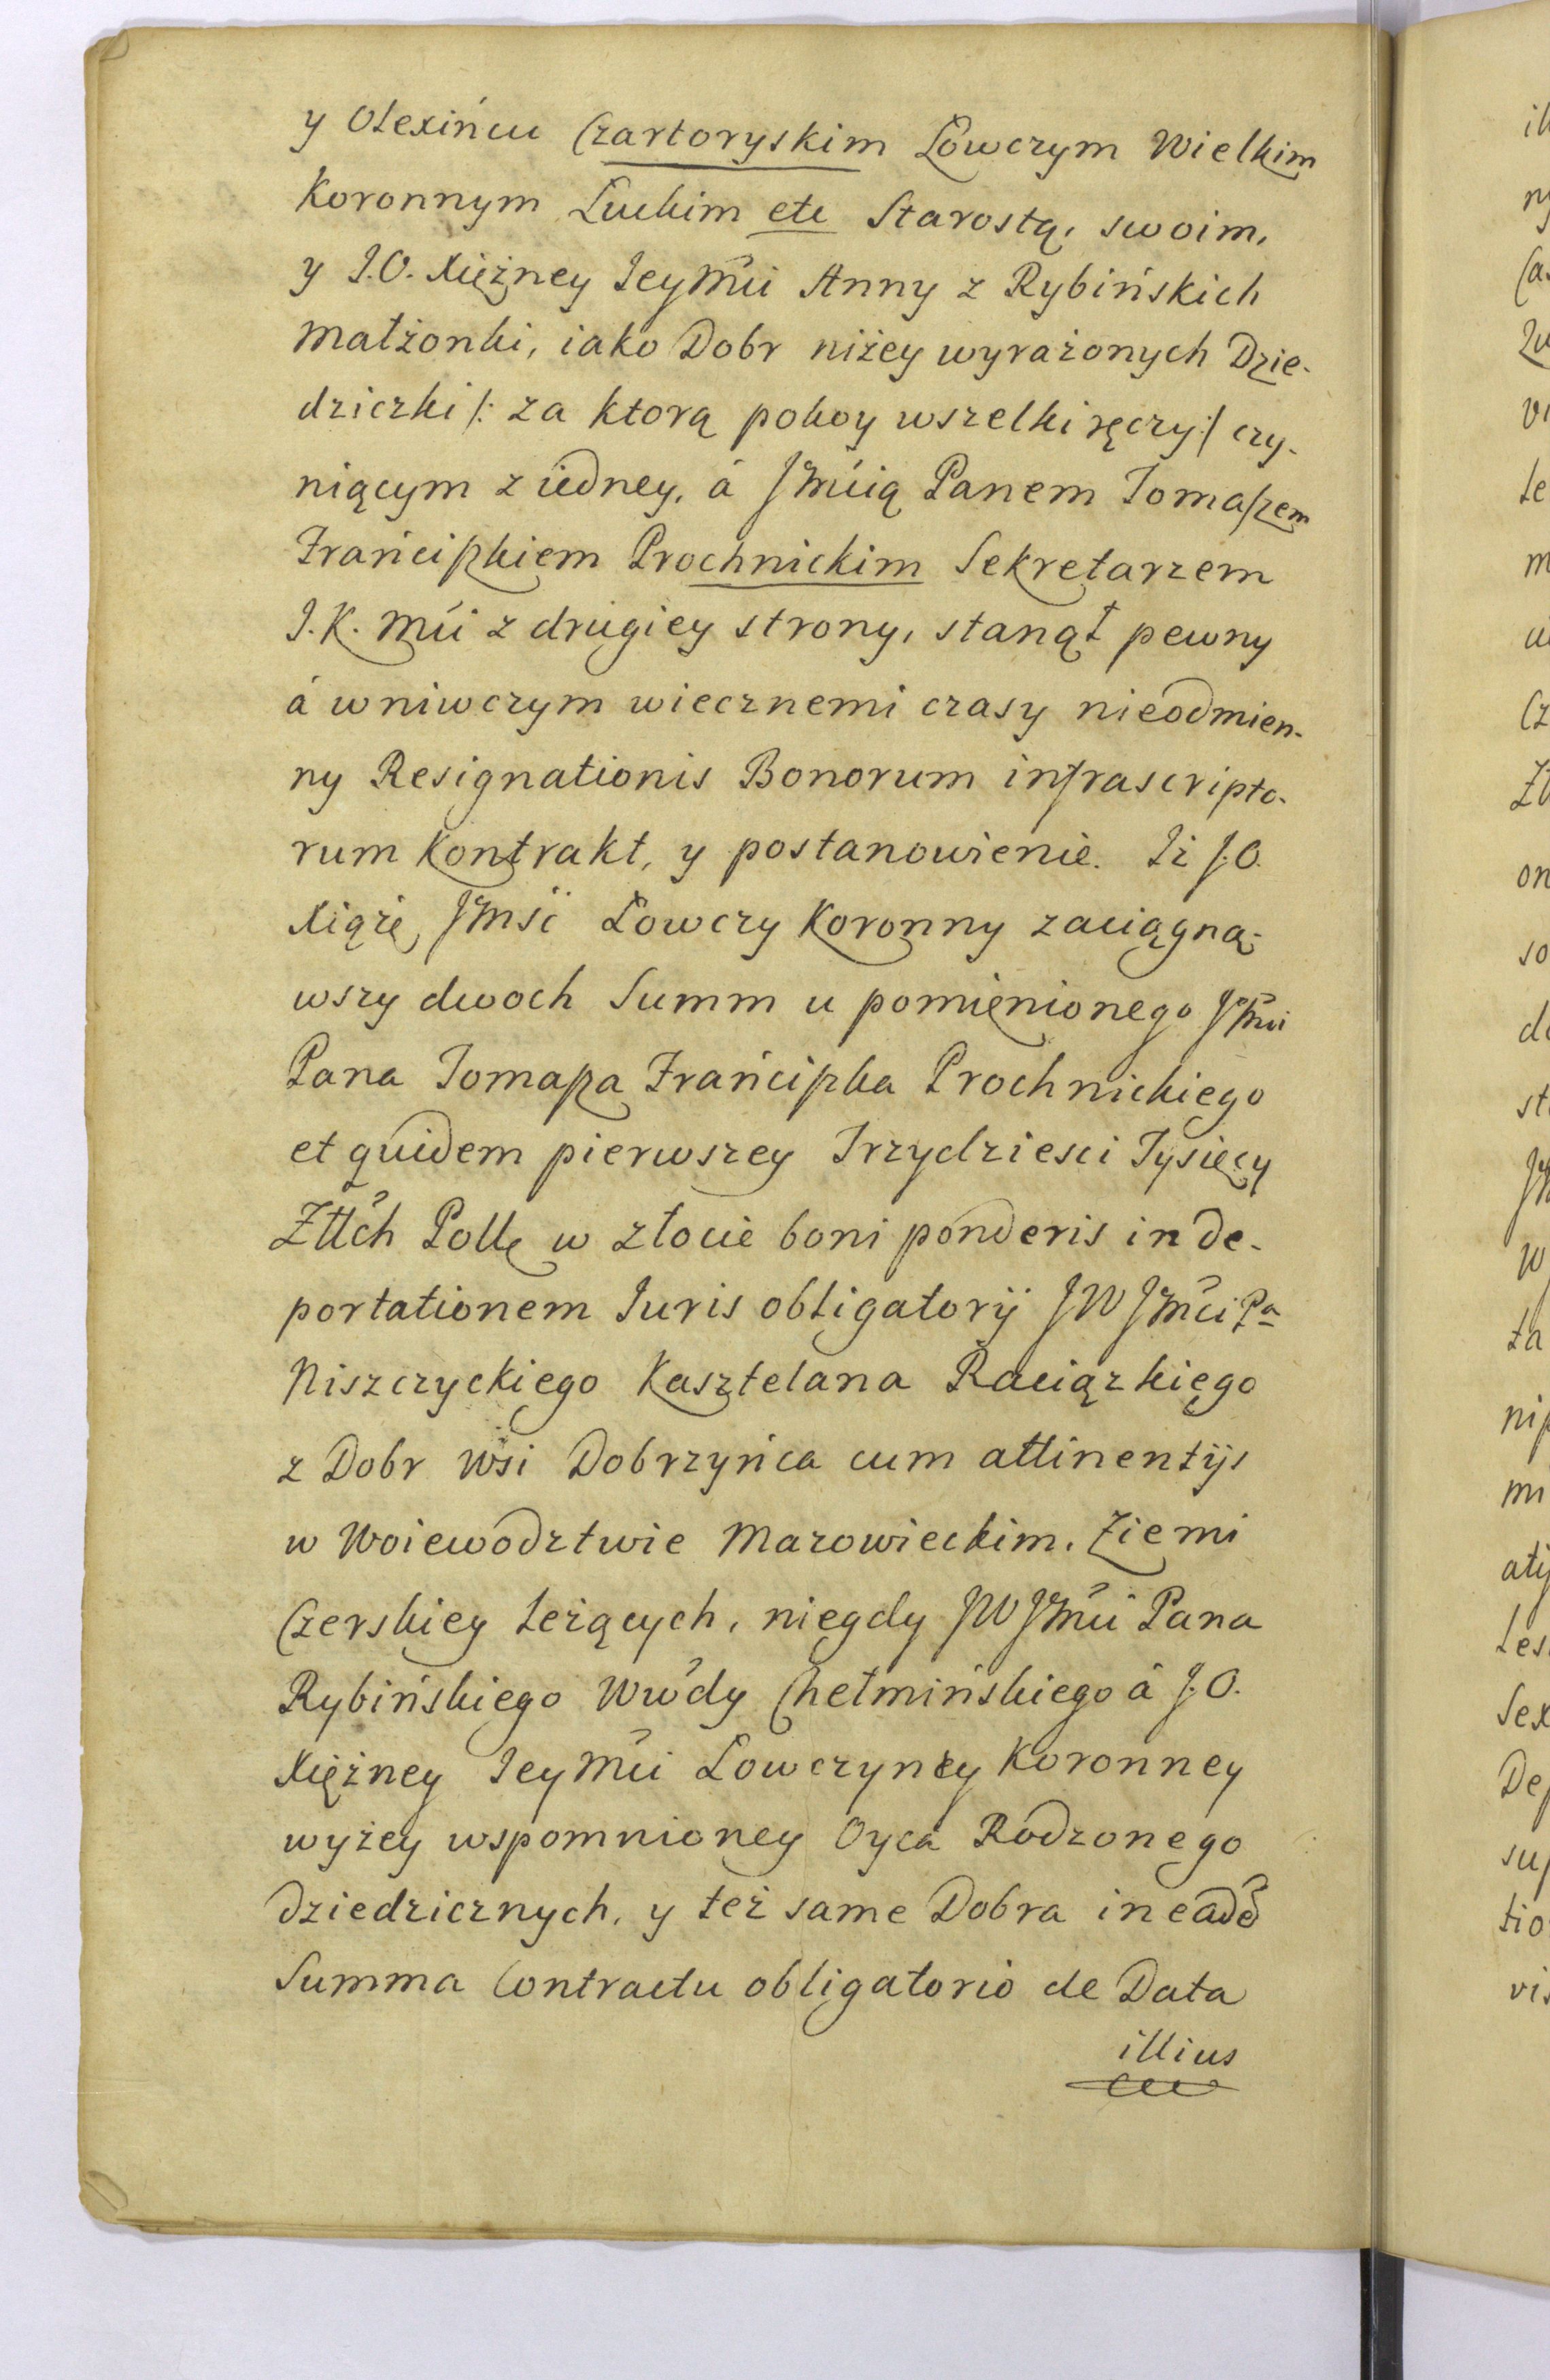 y Olexińcu Czartoryskim Łowczym Wielkim
Koronnym Łuckim etc Starostą, swoim,
y J.O. Xiężney Jeymći Anny z Rybińskich
Małżonki, iako Dobr niżey wyrażonych Dzie-
dziczki /: za ktorą pokoy wszelki ręczy :/ czy-
niącym z iedney, á Jmćią Panem Tomaszem
Frańciszkiem Prochnickim Sekretarzem
J.K. Mći z drugiey strony, stanął pewny
á wniwczym wiecznemi czasy nieodmien-
ny Resignationis Bonorum infrascripto-
rum Kontrakt, y postanowienie. Iż J.O.
Xiąże Jmść Łowczy Koronny zaciągną-
wszy dwoch Summ u pomienionego Jmći
Pana Tomasza Frańciszka Prochnickiego
et quidem pierwszey Trzydziesci Tysięcy
Złłch Poll w złocie boni ponderis in de-
portationem Juris obligatorij JW Jmći Pa
Niszczyckiego Kasztelana Raciązkiego
z Dobr Wsi Dobrzyńca cum attinentijs
w Woiewodztwie Mazowieckim, Ziemi
Czerskiey leżących, niegdy JW Jmći Pana
Rybińskiego Wwdy Chełmińskiego á J.O.
Xiężney Jeymći Łowczyney Koronney
wyżey wspomnioney Oyca Rodzonego
dziedzicznych, y też same Dobra in eadē
Summa Contractu obligatorio de Data
illius